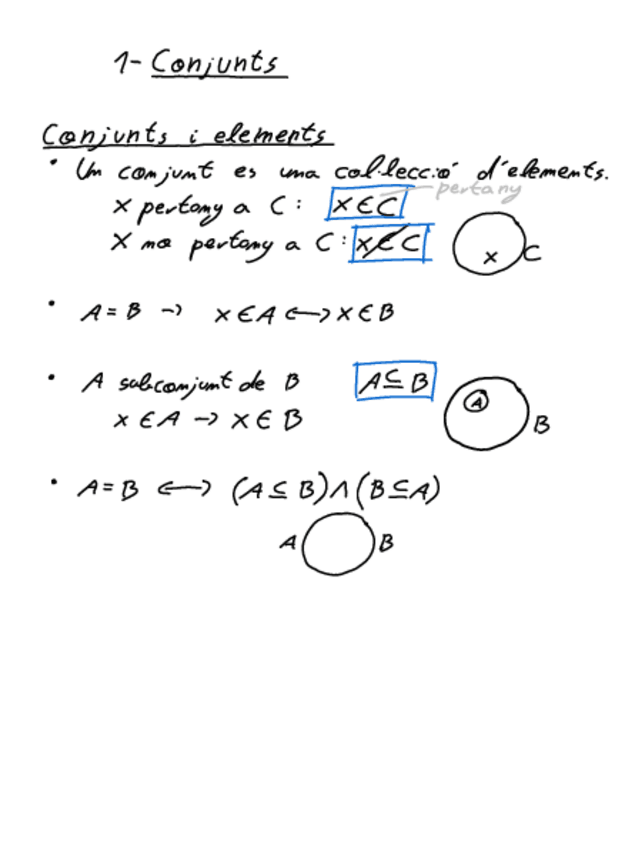 1- Conjunts
Conjunts i elements
• Un conjunt es una col·lecció d'elements.
x pertany a C: x ∈ C pertany
x no pertany a C: x ∉ C
x C
• A = B → x ∈ A ↔ x ∈ B
• A subconjunt de B A ⊆ B
x ∈ A → x ∈ B
A B
• A = B ↔ (A ⊆ B) ∧ (B ⊆ A)
A B